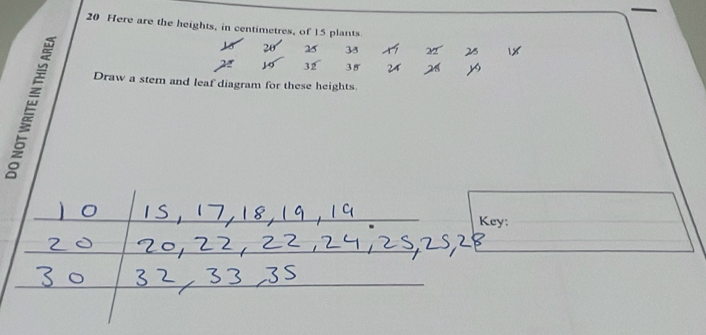 DO NOT WRITE IN THIS AREA
20 Here are the heights, in centimetres, of 15 plants.
20 25 33 25
32 35
Draw a stem and leaf diagram for these heights.
10 15, 17, 18, 19, 19
Key:
20 20, 22, 22, 24, 25, 25, 28
30 32, 33, 35